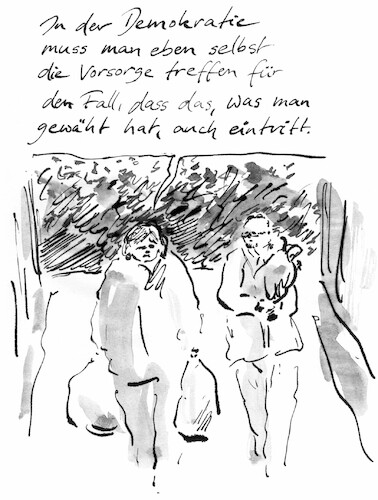 In der Demokratie
muss man eben selbst
die Vorsorge treffen für
den Fall, dass das, was man
gewäht hat, auch eintritt.